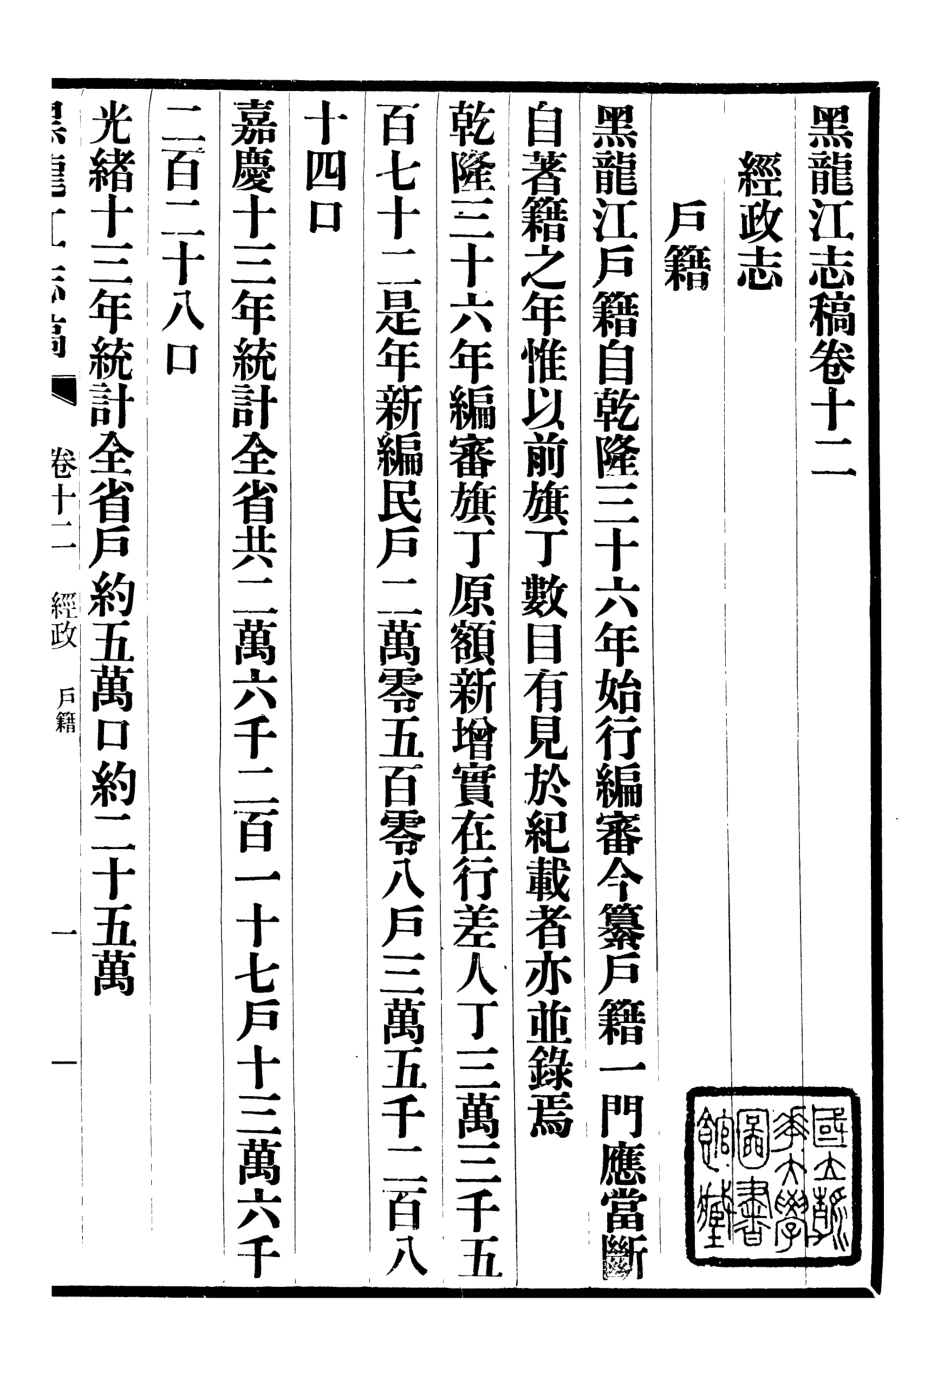 黑龍江志稿卷十二
經政志
戶籍
黑龍江戶籍自乾隆三十六年始行編審今纂戶籍一門應當斷
自著籍之年惟以前旗丁數目有見於紀載者亦並錄焉
乾隆三十六年編審旗丁原額新增實在行差人丁三萬三千五
百七十二是年新編民戶二萬零五百零八戶三萬五千二百八
十四口
嘉慶十三年統計全省共二萬六千二百一十七戶十三萬六千
二百二十八口
光緒十三年統計全省戶約五萬口約二十五萬
黑龍江志稿 卷十二 經政 戶籍 一
國立清華大學圖書館藏